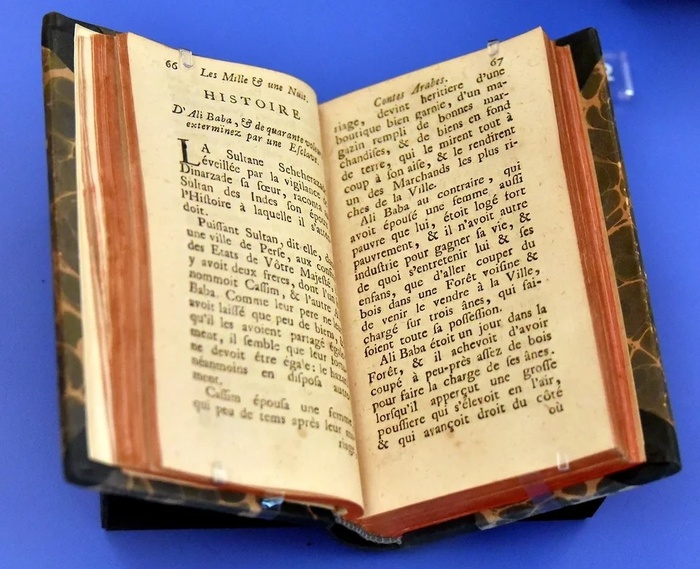 66
Les Mille & une Nuit,
HISTOIRE
D'Ali Baba, & de quarante
exterminez par une Esclave.
LA Sultane Scheherazade
éveillée par la vigilance
Dinarzade sa sœur, raconta
Sultan des Indes son
l'Histoire à laquelle il
doit.
Puissant Sultan, dit elle,
une ville de Perse, aux
des Etats de Vôtre Majesté,
y avoit deux freres, dont l'un
nommoit Cassim, & l'autre
Baba. Comme leur pere ne
avoit laissé que peu de biens,
qu'ils les avoient partagé
ment, il semble que leur
ne devoit être égale: le
néanmoins en disposa
ment.
Cassim épousa une femme
qui peu de tems aprés leur
riage
67
Contes Arabes.
riage, devint heritiere d'une
boutique bien garnie, d'un ma-
gazin rempli de bonnes mar-
chandises, & de biens en fond
de terre, qui le mirent tout à
coup à son aise, & le rendirent
un des Marchands les plus ri-
ches de la Ville.
Ali Baba au contraire, qui
avoit épousé une femme aussi
pauvre que lui, étoit logé fort
pauvrement, & il n'avoit autre
industrie pour gagner sa vie, &
de quoi s'entretenir lui & ses
enfans, que d'aller couper du
bois dans une Forêt voisine &
de venir le vendre à la Ville,
chargé sur trois ânes, qui fai-
soient toute sa possession.
Ali Baba étoit un jour dans la
Forêt, & il achevoit d'avoir
coupé à peu-près assez de bois
pour faire la charge de ses ânes.
lorsqu'il apperçut une grosse
poussiere qui s'élevoit en l'air,
& qui avançoit droit du côté
où